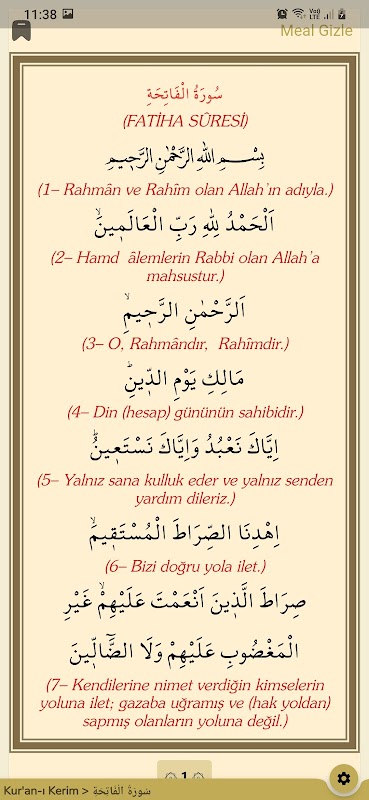 11:38
VoD LTE
Meal Gizle
سُورَةُ الْفَاتِحَةِ
(FATİHA SÛRESİ)
بِسْــــمِ اللهِ الرَّحْمٰنِ الرَّحٖيمِ
(1– Rahmân ve Rahîm olan Allah'ın adıyla.)
اَلْحَمْدُ لِلّٰهِ رَبِّ الْعَالَمٖينَۙ
(2– Hamd âlemlerin Rabbi olan Allah'a
mahsustur.)
اَلرَّحْمٰنِ الرَّحٖيمِۙ
(3– O, Rahmândır, Rahîmdir.)
مَالِكِ يَوْمِ الدّٖينِؕ
(4– Din (hesap) gününün sahibidir.)
اِيَّاكَ نَعْبُدُ وَاِيَّاكَ نَسْتَعٖينُؕ
(5– Yalnız sana kulluk eder ve yalnız senden
yardım dileriz.)
اِهْدِنَا الصِّرَاطَ الْمُسْتَقٖيمَۙ
(6– Bizi doğru yola ilet.)
صِرَاطَ الَّذٖينَ اَنْعَمْتَ عَلَيْهِمْۙ غَيْرِ
الْمَغْضُوبِ عَلَيْهِمْ وَلَا الضَّٓالّٖينَ
(7– Kendilerine nimet verdiğin kimselerin
yoluna ilet; gazaba uğramış ve (hak yoldan)
sapmış olanların yoluna değil.)
1
Kur'an-ı Kerim > سُورَةُ الْفَاتِحَةِ